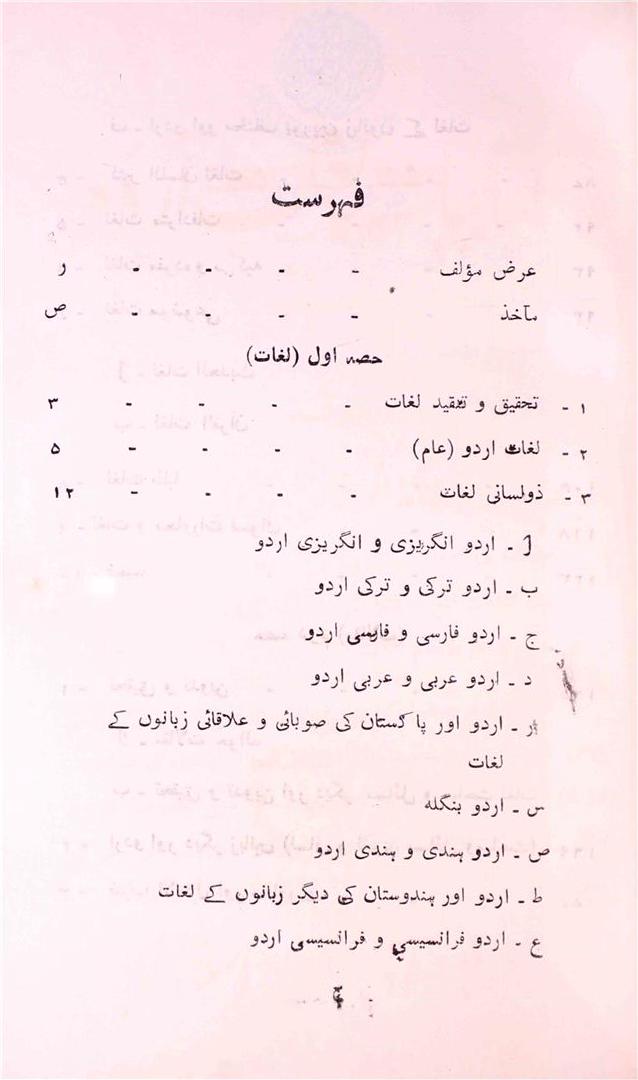 فہرست
عرض مؤلف - - - - ر
مآخذ - - - - ص
حصہ اول (لغات)
۱ - تحقیق و تنقید لغات - - - - ۳
۲ - لغات اردو (عام) - - - - ۵
۳ - ذولسانی لغات - - - - ۱۲
أ - اردو انگریزی و انگریزی اردو
ب - اردو ترکی و ترکی اردو
ج - اردو فارسی و فارسی اردو
د - اردو عربی و عربی اردو
ر - اردو اور پاکستان کی صوبائی و علاقائی زبانوں کے
لغات
س - اردو بنگلہ
ص - اردو ہندی و ہندی اردو
ط - اردو اور ہندوستان کی دیگر زبانوں کے لغات
ع - اردو فرانسیسی و فرانسیسی اردو